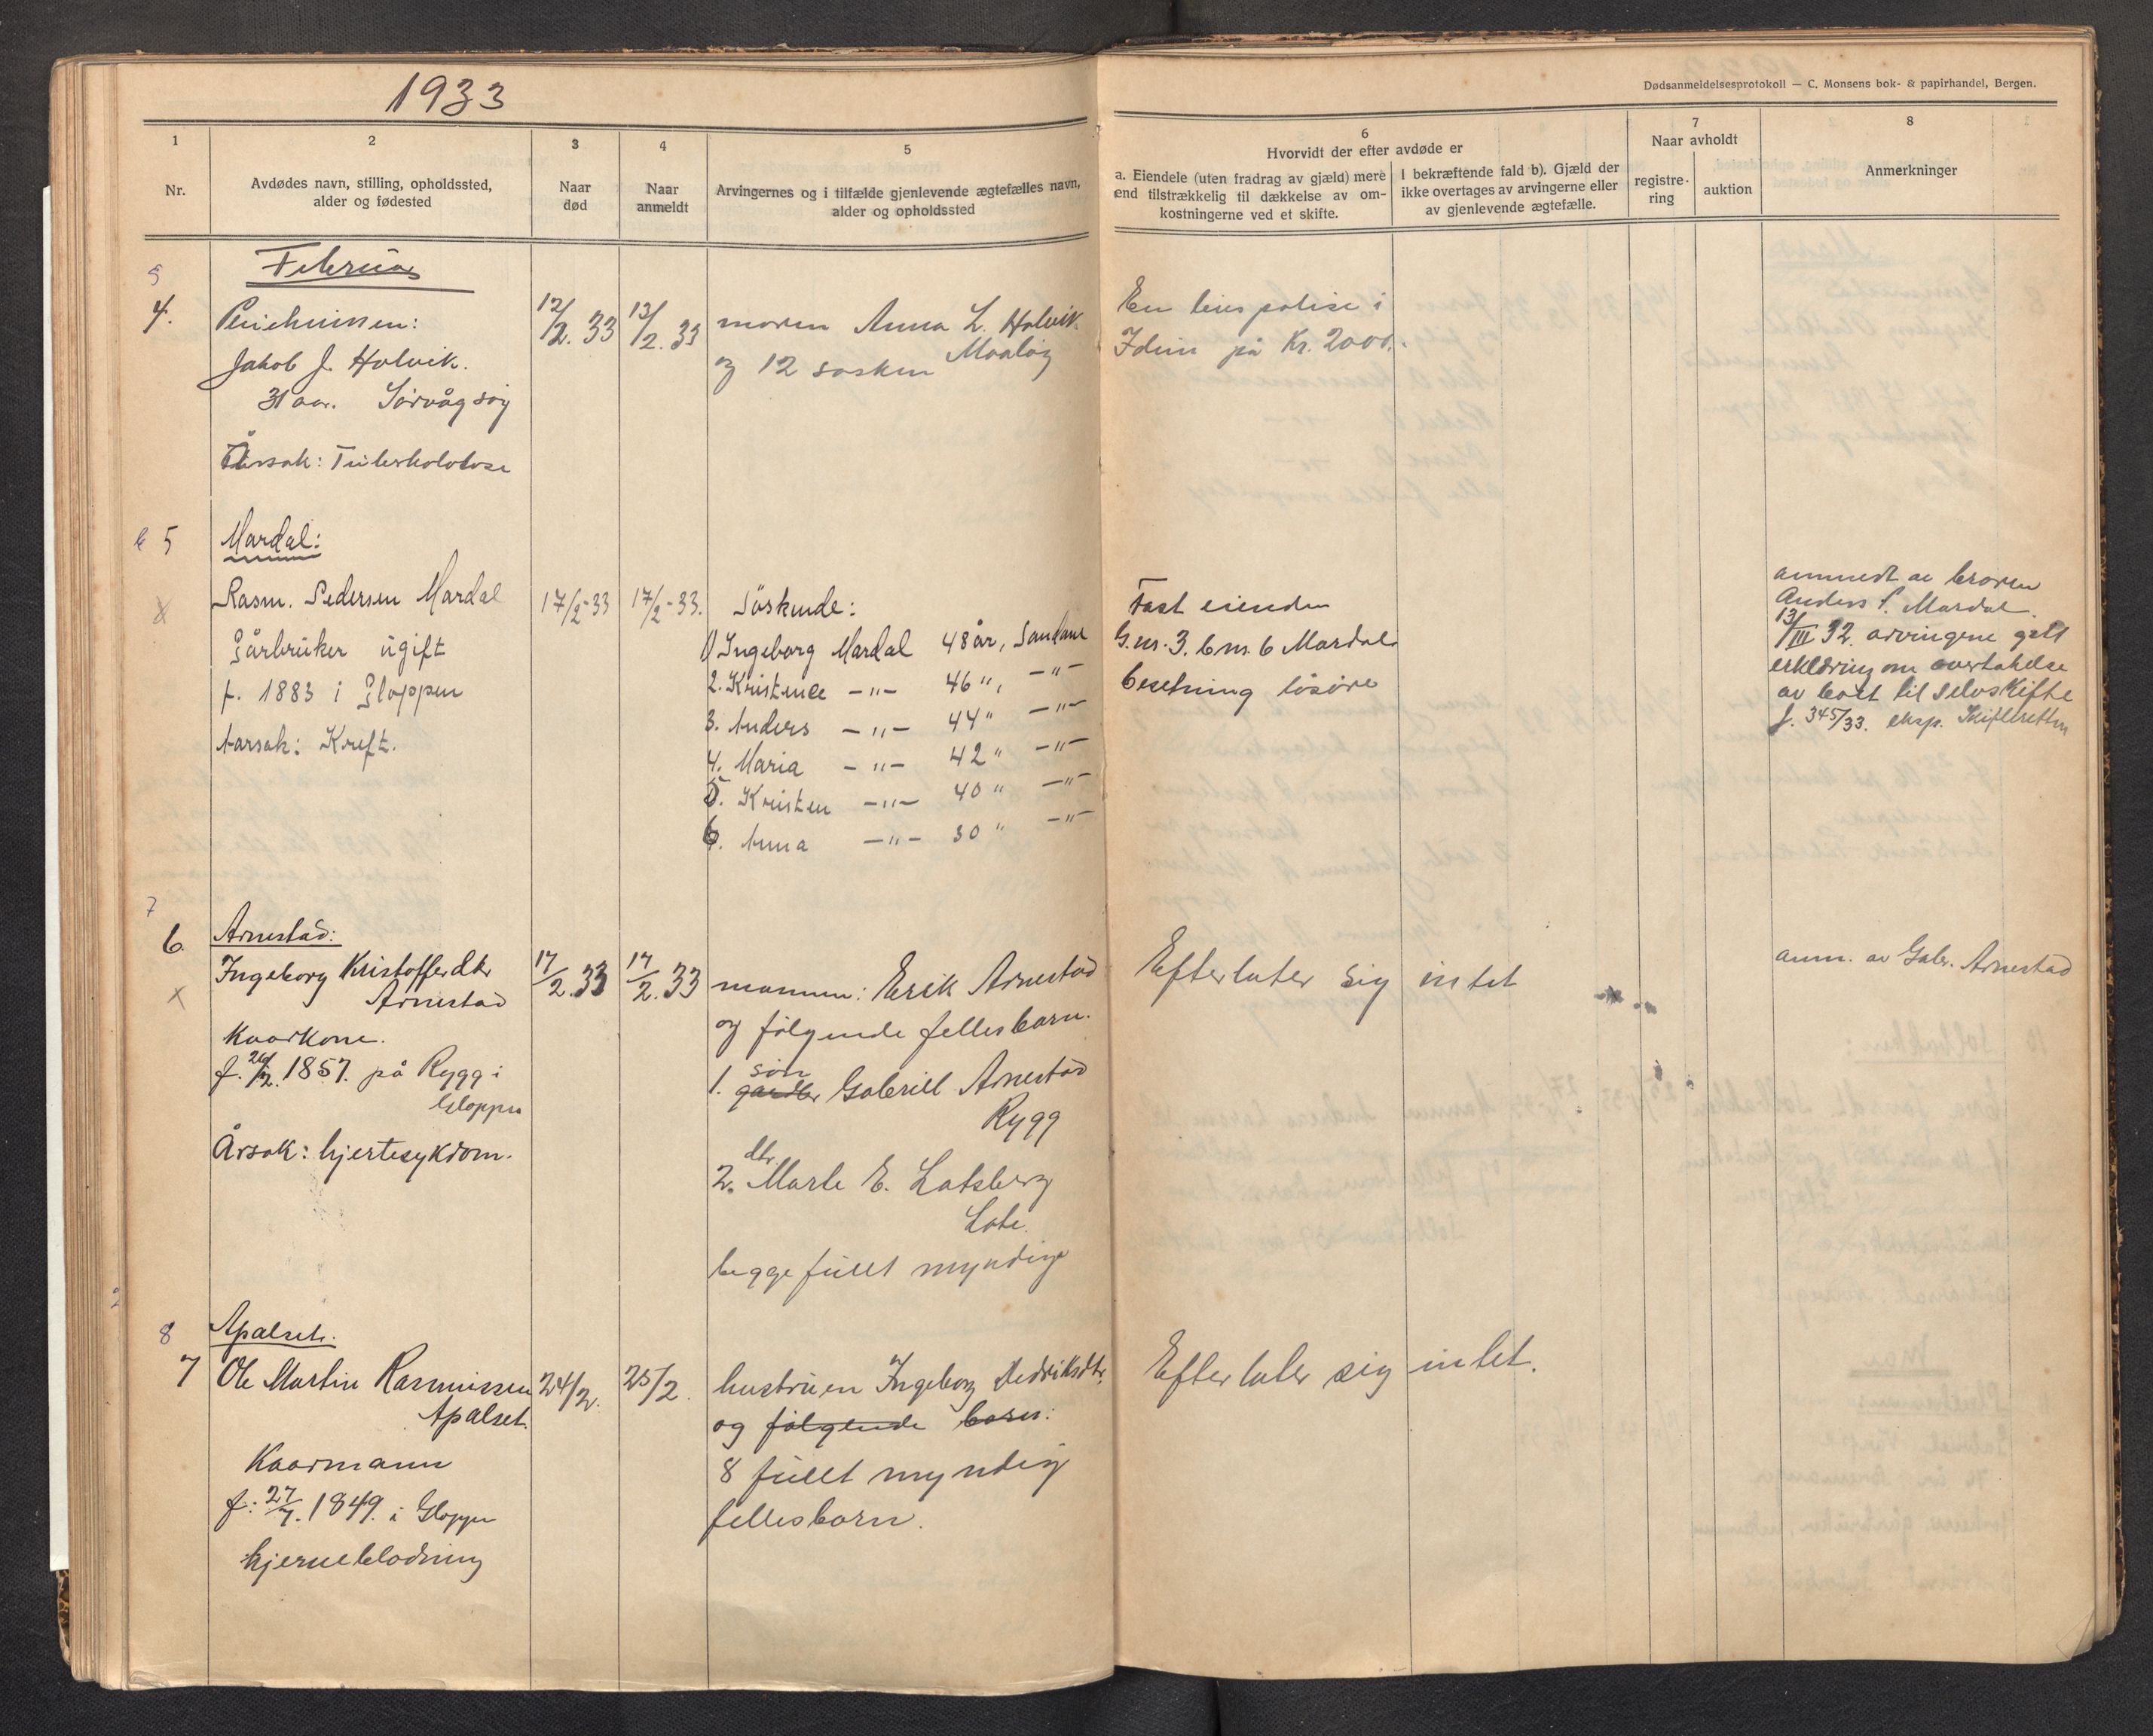 1933
Dødsanmeldelsesprotokoll — C. Monsens bok- & papirhandel, Bergen.
1
Nr.
2
Avdødes navn, stilling, opholdssted,
alder og fødested
3
Naar
død
4
Naar
anmeldt
5
Arvingernes og i tilfælde gjenlevende ægtefælles navn,
alder og opholdssted
6
Hvorvidt der efter avdøde er
a. Eiendele (uten fradrag av gjæld) mere
end tilstrækkelig til dækkelse av om-
kostningerne ved et skifte.
I bekræftende fald b). Gjæld der
ikke overtages av arvingerne eller
av gjenlevende ægtefælle.
7
Naar avholdt
registre-
ring
auktion
8
Anmerkninger
Februar
5
4.
Jakob J. Holvik.
31 aar. Sørvågsøy
Årsak: Tuberkolose
12/2. 33
13/2. 33
moren Anna L. Holvik
Maaløy
og 12 søsken
En livspolise i
Idun på Kr. 2000.-
6 5
Mardal:
x
Rasm. Pedersen Mardal
Gårbruker ugift
f. 1883 i Gloppen
Aarsak: Kreft.
17/2-33
17/2-33.
Søskende:
1) Ingeborg Mardal 48 år, Sandane
2. Kristence —"— 46 ", —"—
3. Anders —"— 44 " —"—
4. Maria —"— 42 " —"—
5. Kristen —"— 40 " —"—
6. Anna —"— 30 " —"—
Fast eiendom
G.nr. 3. b.nr. 6 Mardal
besetning løsøre
anmedt av broren
Anders P. Mardal.
13/III 32. arvingene gitt
erklæring om overtakelse
av boet til selvskifte
J. 345/33. eksp. Skifteretten
7
6
x
Arnestad:
Ingeborg Kristofferdtr
Arnestad
Kaarkone.
f. 26/2. 1857. på Rygg i
Gloppen
Årsak: hjertesykdom.
17/2.33
17/2.33
mannen: Erik Arnestad
og følgende fellesbarn.
søn
1. Gabriell Arnestad
Rygg
dtr
2. Marte E. Lotsberg
Lote.
begge fullt myndige
Efterlater sig intet
anm. av Gabr. Arnestad
8
7
Apalset.
Ole Martin Rasmussen
Apalset.
Kaarmann
f: 27/7. 1849. i Gloppen
hjerneblødning
24/2.
25/2.
hustruen Ingeborg Dedriksdtr.
og følgende barn:
8 fullt myndige
fellesbarn.
Efterlater sig intet.